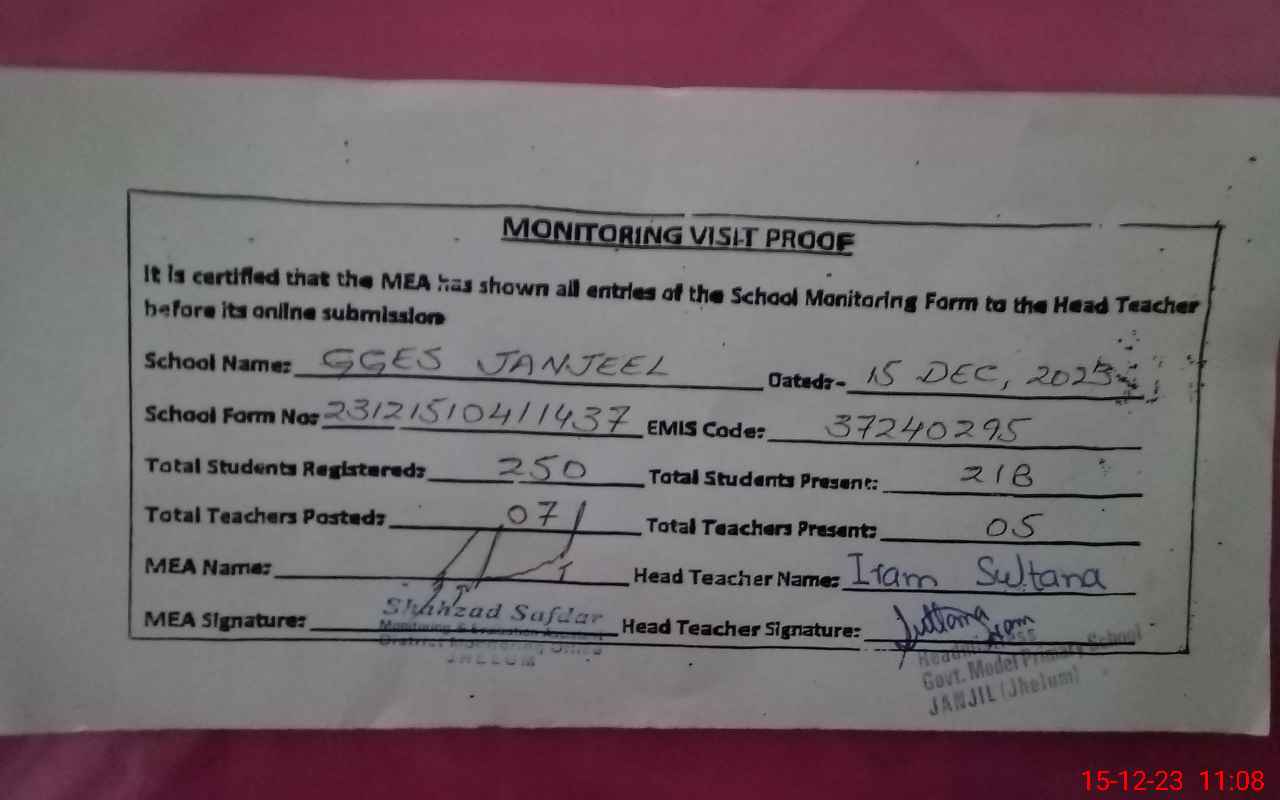 MONITORING VISIT PROOF
It is certified that the MEA has shown all entries of the School Monitoring Form to the Head Teacher
before its online submission
School Name: GGES JANJEEL Dated:- 15 DEC, 2023
School Form No: 23121510411437 EMIS Code: 37240295
Total Students Registered: 250 Total Students Present: 218
Total Teachers Posted: 07 Total Teachers Present: 05
MEA Name: Head Teacher Name: Iram Sultana
MEA Signature: Head Teacher Signature: Sultana Iram
Shahzad Safdar
Monitoring & Evaluation Assistant
District Monitoring Office
JHELUM
Headmistress
Govt. Model Primary School
JANJIL (Jhelum)
15-12-23 11:08